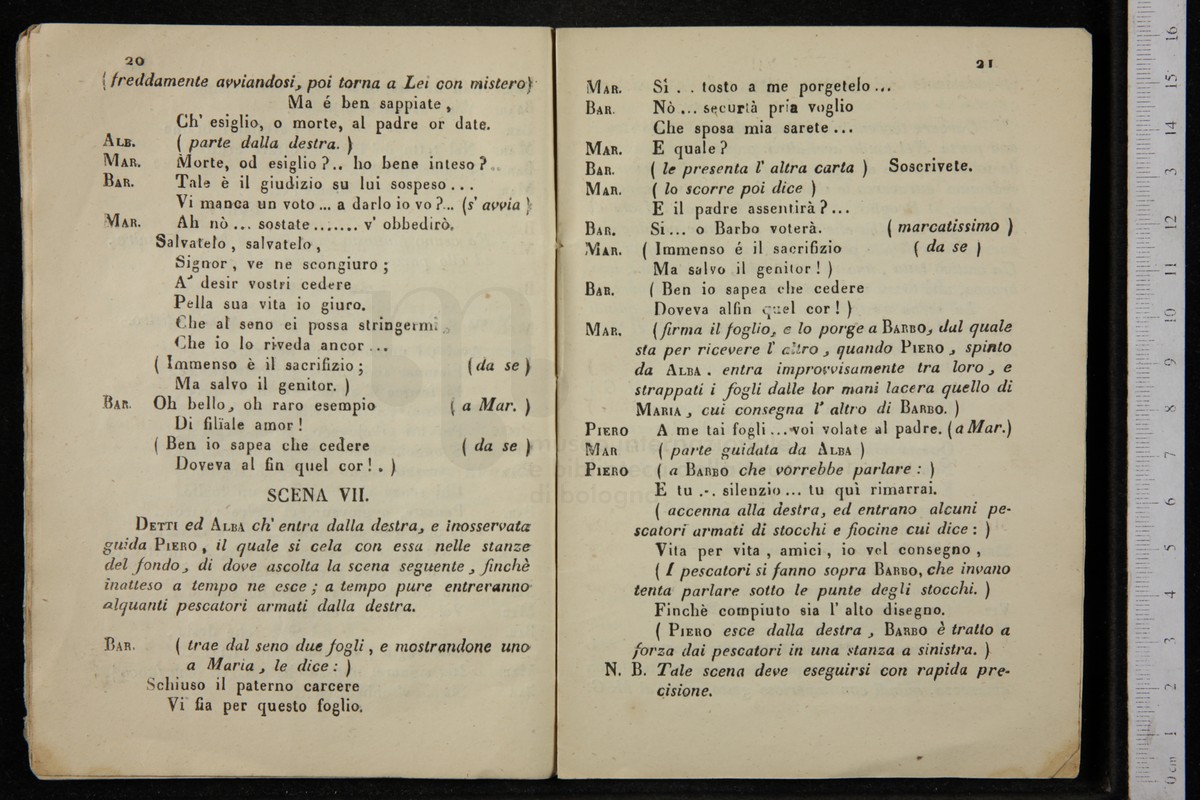 20
( freddamente avviandosi, poi torna a Lei con mistero)
Ma é ben sappiate ,
Ch' esiglio, o morte, al padre or date.
ALB. ( parte dalla destra. )
MAR. Morte, od esiglio ?.. ho bene inteso ? ..
BAR. Tale è il giudizio su lui sospeso . . .
Vi manca un voto ... a darlo io vo ?... (s' avvia )
MAR. Ah nò ... sostate ....... v' obbedirò.
Salvatelo , salvatelo ,
Signor , ve ne scongiuro ;
A' desir vostri cedere
Pella sua vita io giuro.
Che al seno ei possa stringermi
Che io lo riveda ancor ...
( Immenso è il sacrifizio ; (da se )
Ma salvo il genitor. )
BAR. Oh bello, oh raro esempio ( a Mar. )
Di filïale amor !
( Ben io sapea che cedere ( da se )
Doveva al fin quel cor ! . )
SCENA VII.
DETTI ed ALBA ch' entra dalla destra, e inosservata
guida PIERO , il quale si cela con essa nelle stanze
del fondo, di dove ascolta la scena seguente , finchè
inatteso a tempo ne esce ; a tempo pure entreranno
alquanti pescatori armati dalla destra.
BAR. ( trae dal seno due fogli , e mostrandone uno
a Maria , le dice : )
Schiuso il paterno carcere
Vi fia per questo foglio.
21
MAR. Sì . . tosto a me porgetelo ...
BAR. Nò ... securtà pria voglio
Che sposa mia sarete ...
MAR. E quale ?
BAR. ( le presenta l' altra carta ) Soscrivete.
MAR. ( lo scorre poi dice )
E il padre assentirà ? ...
BAR. Si ... o Barbo voterà. ( marcatissimo )
MAR. ( Immenso é il sacrifizio ( da se )
Ma salvo il genitor ! )
BAR. ( Ben io sapea che cedere
Doveva alfin quel cor ! )
MAR. (firma il foglio, e lo porge a BARBO, dal quale
sta per ricevere l' altro , quando PIERO , spinto
da ALBA . entra improvvisamente tra loro , e
strappati i fogli dalle lor mani lacera quello di
MARIA , cui consegna l' altro di BARBO. )
PIERO A me tai fogli ... voi volate al padre. (a Mar.)
MAR ( parte guidata da ALBA )
PIERO ( a BARBO che vorrebbe parlare : )
E tu .-. silenzio ... tu quì rimarrai.
( accenna alla destra, ed entrano alcuni pe-
scatori armati di stocchi e fiocine cui dice : )
Vita per vita , amici , io vel consegno ,
( I pescatori si fanno sopra BARBO, che invano
tenta parlare sotto le punte degli stocchi. )
Finchè compiuto sia l' alto disegno.
( PIERO esce dalla destra , BARBO è tratto a
forza dai pescatori in una stanza a sinistra. )
N. B. Tale scena deve eseguirsi con rapida pre-
cisione.
museo internazionale
e biblioteca
di bologna
0 cm 1 2 3 4 5 6 7 8 9 10 11 12 13 14 15 16